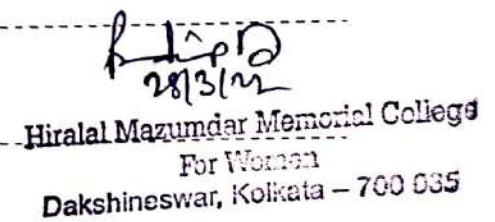 28/3/22
Hiralal Mazumdar Memorial College
For Women
Dakshineswar, Kolkata – 700 035